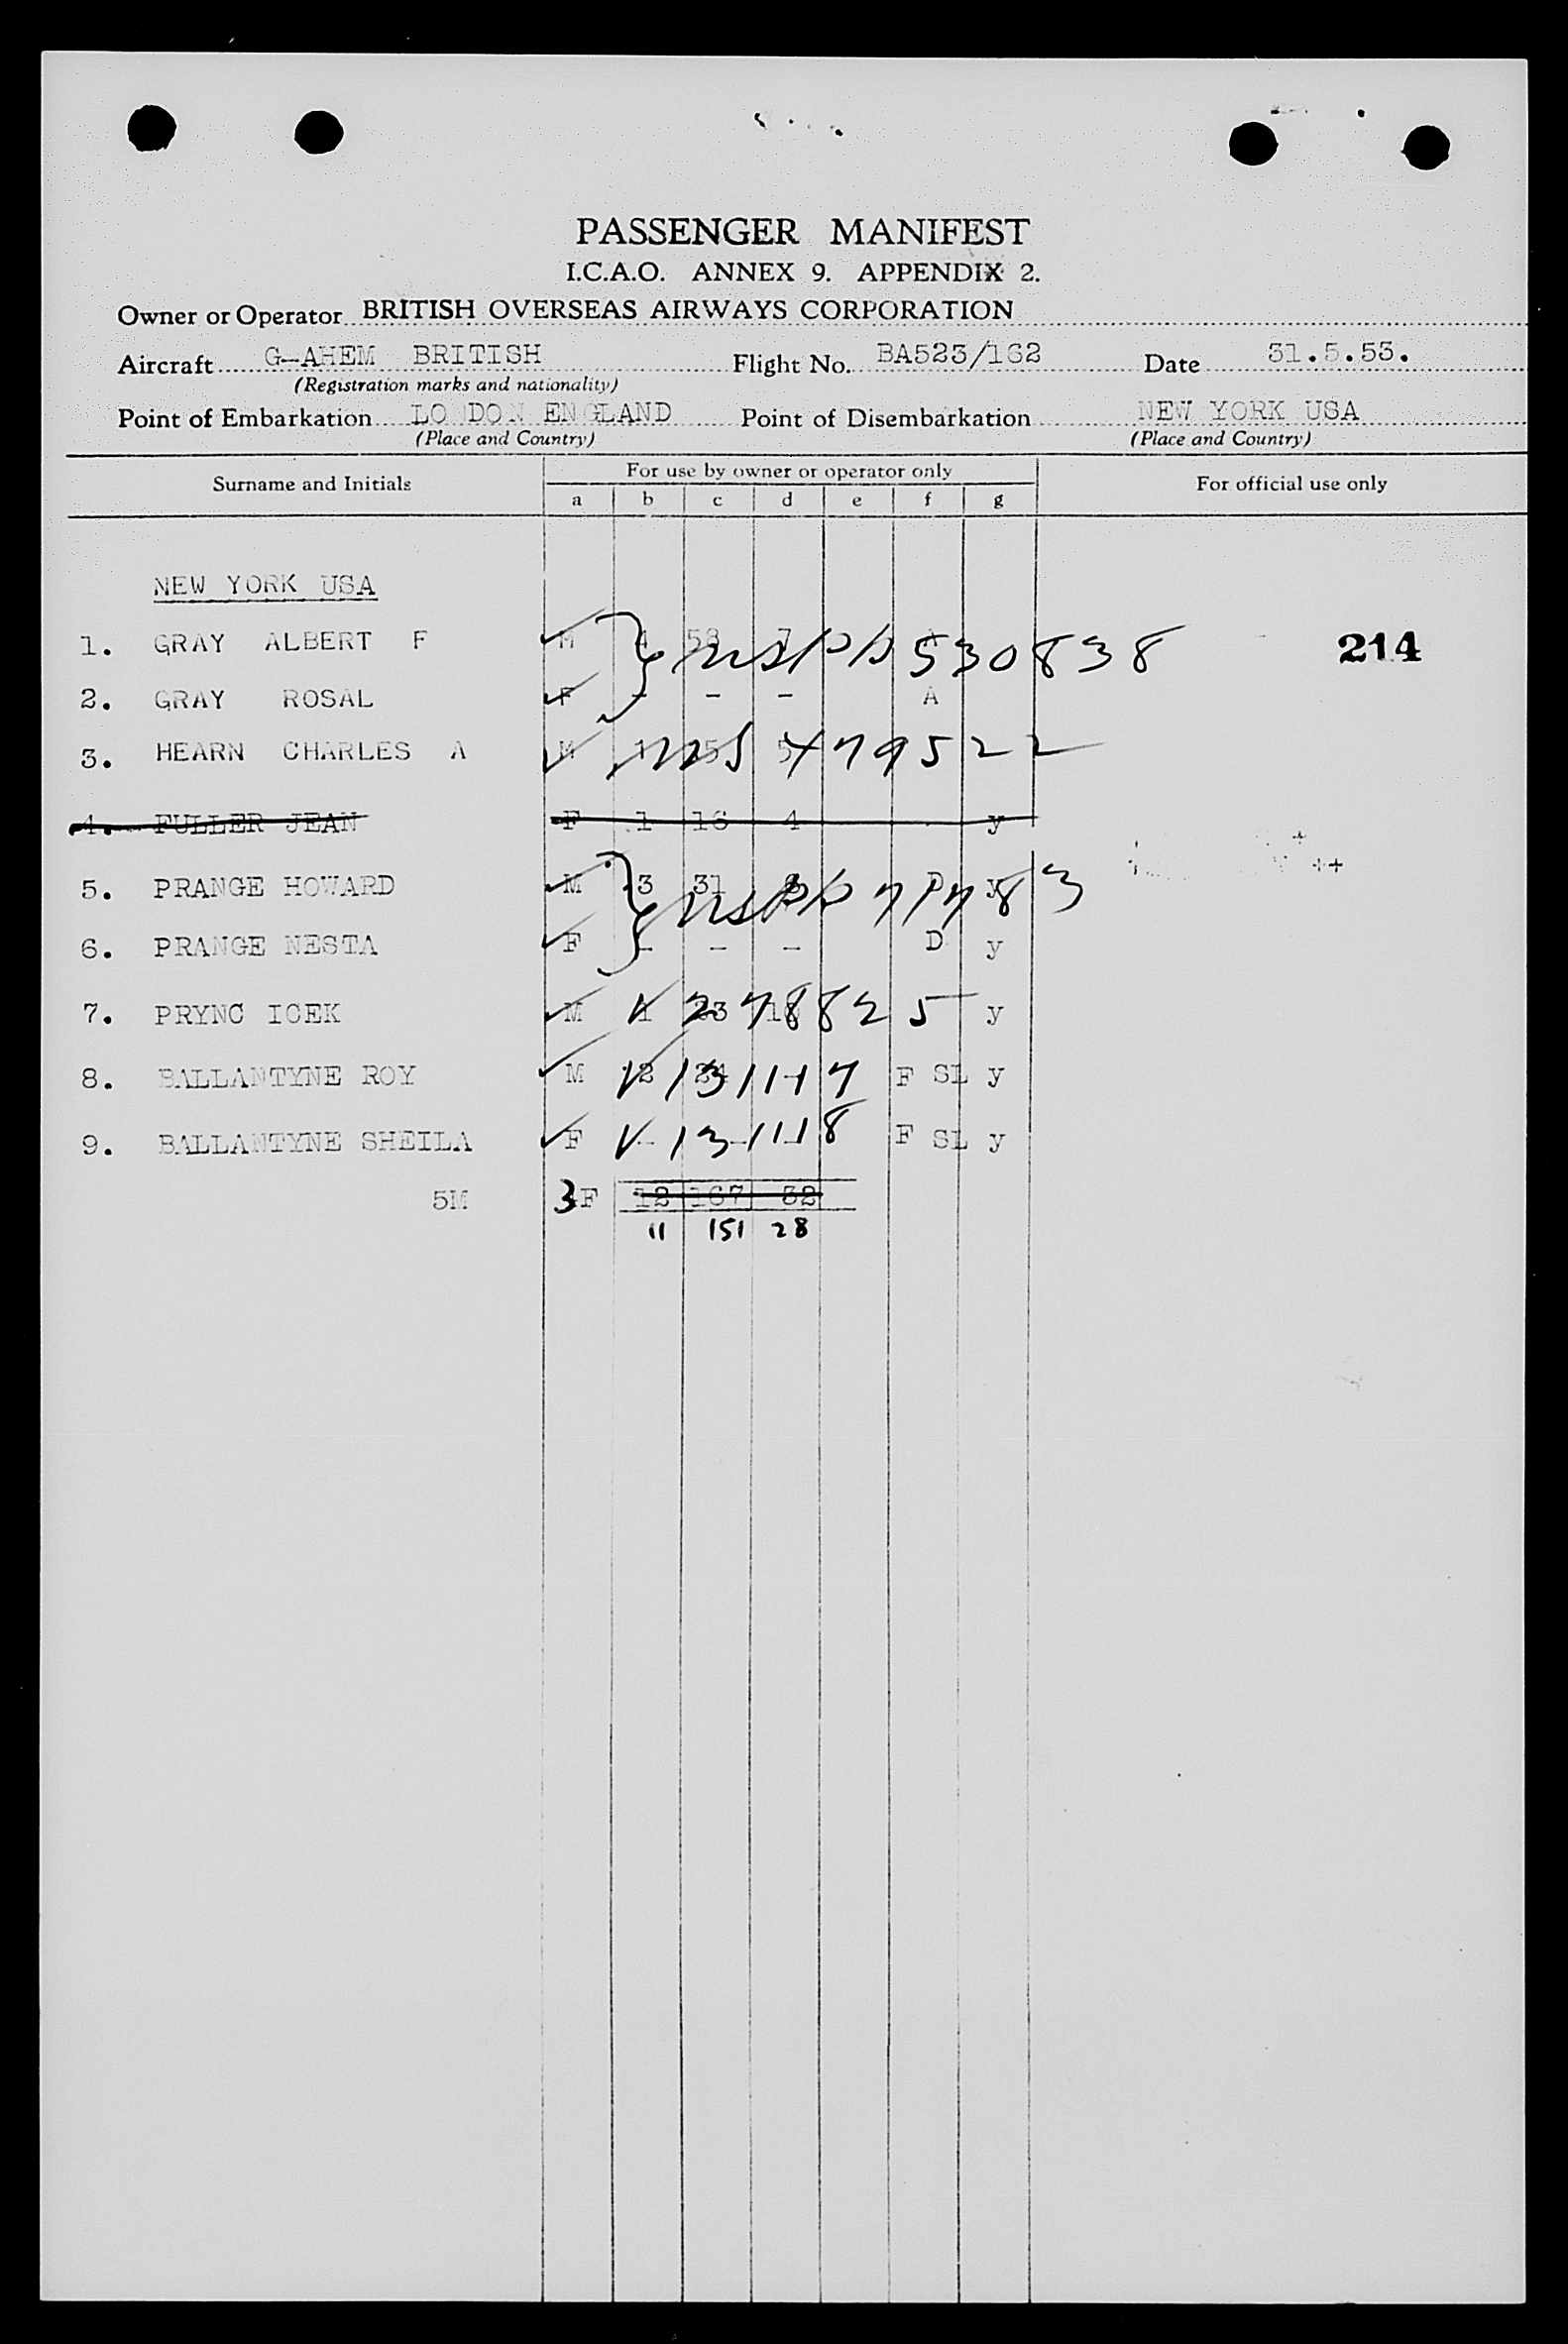 PASSENGER MANIFEST
I.C.A.O. ANNEX 9. APPENDIX 2.
Owner or Operator BRITISH OVERSEAS AIRWAYS CORPORATION
Aircraft G-AHEM BRITISH Flight No. BA523/162 Date 31.5.53.
(Registration marks and nationality)
Point of Embarkation LONDON ENGLAND Point of Disembarkation NEW YORK USA
(Place and Country) (Place and Country)
Surname and Initials For use by owner or operator only For official use only
a b c d e f g
NEW YORK USA
1. GRAY ALBERT F M 58 7 530838 214
2. GRAY ROSAL F - - - A
3. HEARN CHARLES A M 479522
4. FULLER JEAN F 1 16 4 y
5. PRANGE HOWARD M 3 31 D y
6. PRANGE NESTA F - - - D y
7. PRYNC ICEK M 1 278825 y
8. BALLANTYNE ROY M 2 34 131117 F SL y
9. BALLANTYNE SHEILA F - 131118 F SL y
5M 3F 12 167 32
11 151 28